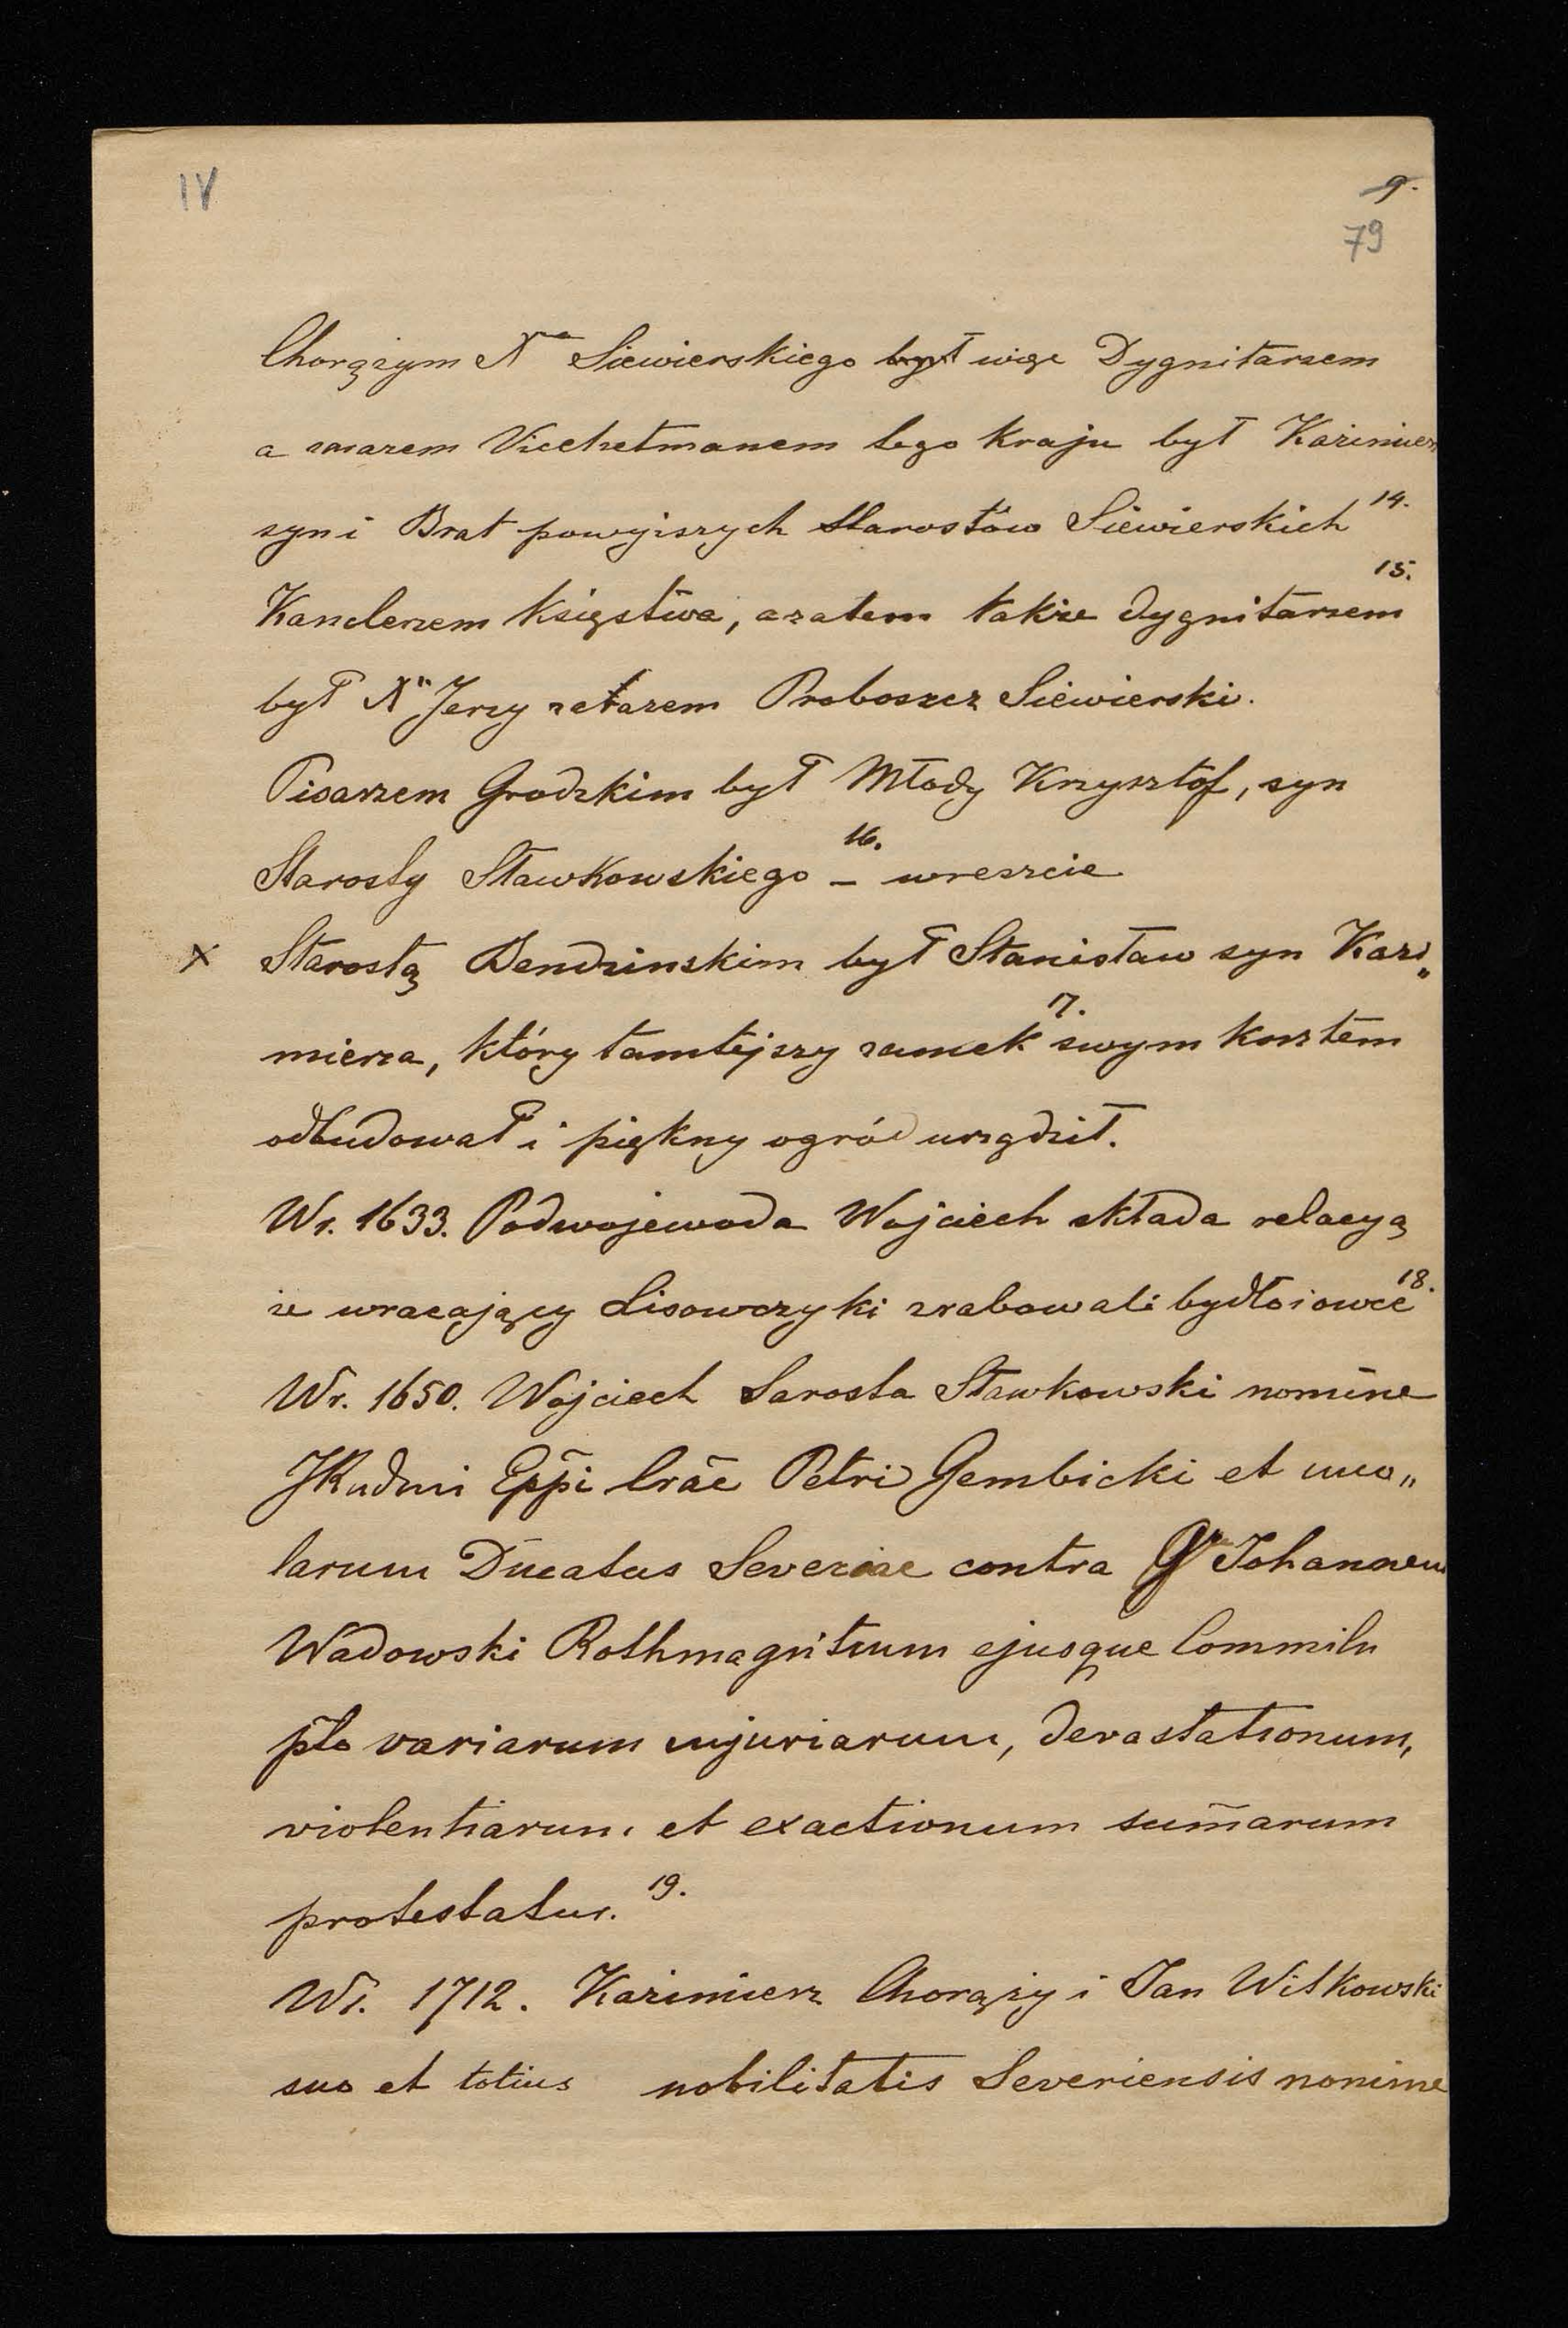 IV
9.
79
Chorążym Xa Siewierskiego był więc Dygnitarzem
a zarazem Vicehetmanem tego kraju był Kazimierz
syn i Brat powyższych Starostów Siewierskich 14.
Kanclerzem Księstwa, a zatem także dygnitarzem 15.
był X Jerzy zarazem Proboszcz Siewierski.
Pisarzem Grodzkim był Młody Krzysztof, syn
Starosty Sławkowskiego 16. – wreszcie
x Starostą Bendzinskim był Stanisław syn Kazi„
mierza, który tamtejszy zamek 17. swym kosztem
odbudował i piękny ogród urządził.
Wr. 1633. Podwojewoda Wojciech składa relacyą
że wracający Lisowczyki zrabowali bydło i owce 18.
Wr. 1650. Wojciech Sarosta Sławkowski nomine
Eppi Crac Petri Gembicki et inco„
larum Ducatus Severiae contra Johannem
Wadowski Rothmagistrum ejusque Commilit
pto variarum injuriarum, devastationum,
violentiarum et exactionum sum̄arum
protestatur. 19.
Wr. 1712. Kazimierz Chorąży i Jan Witkowski
suo et totius nobilitatis Severiensis nomine